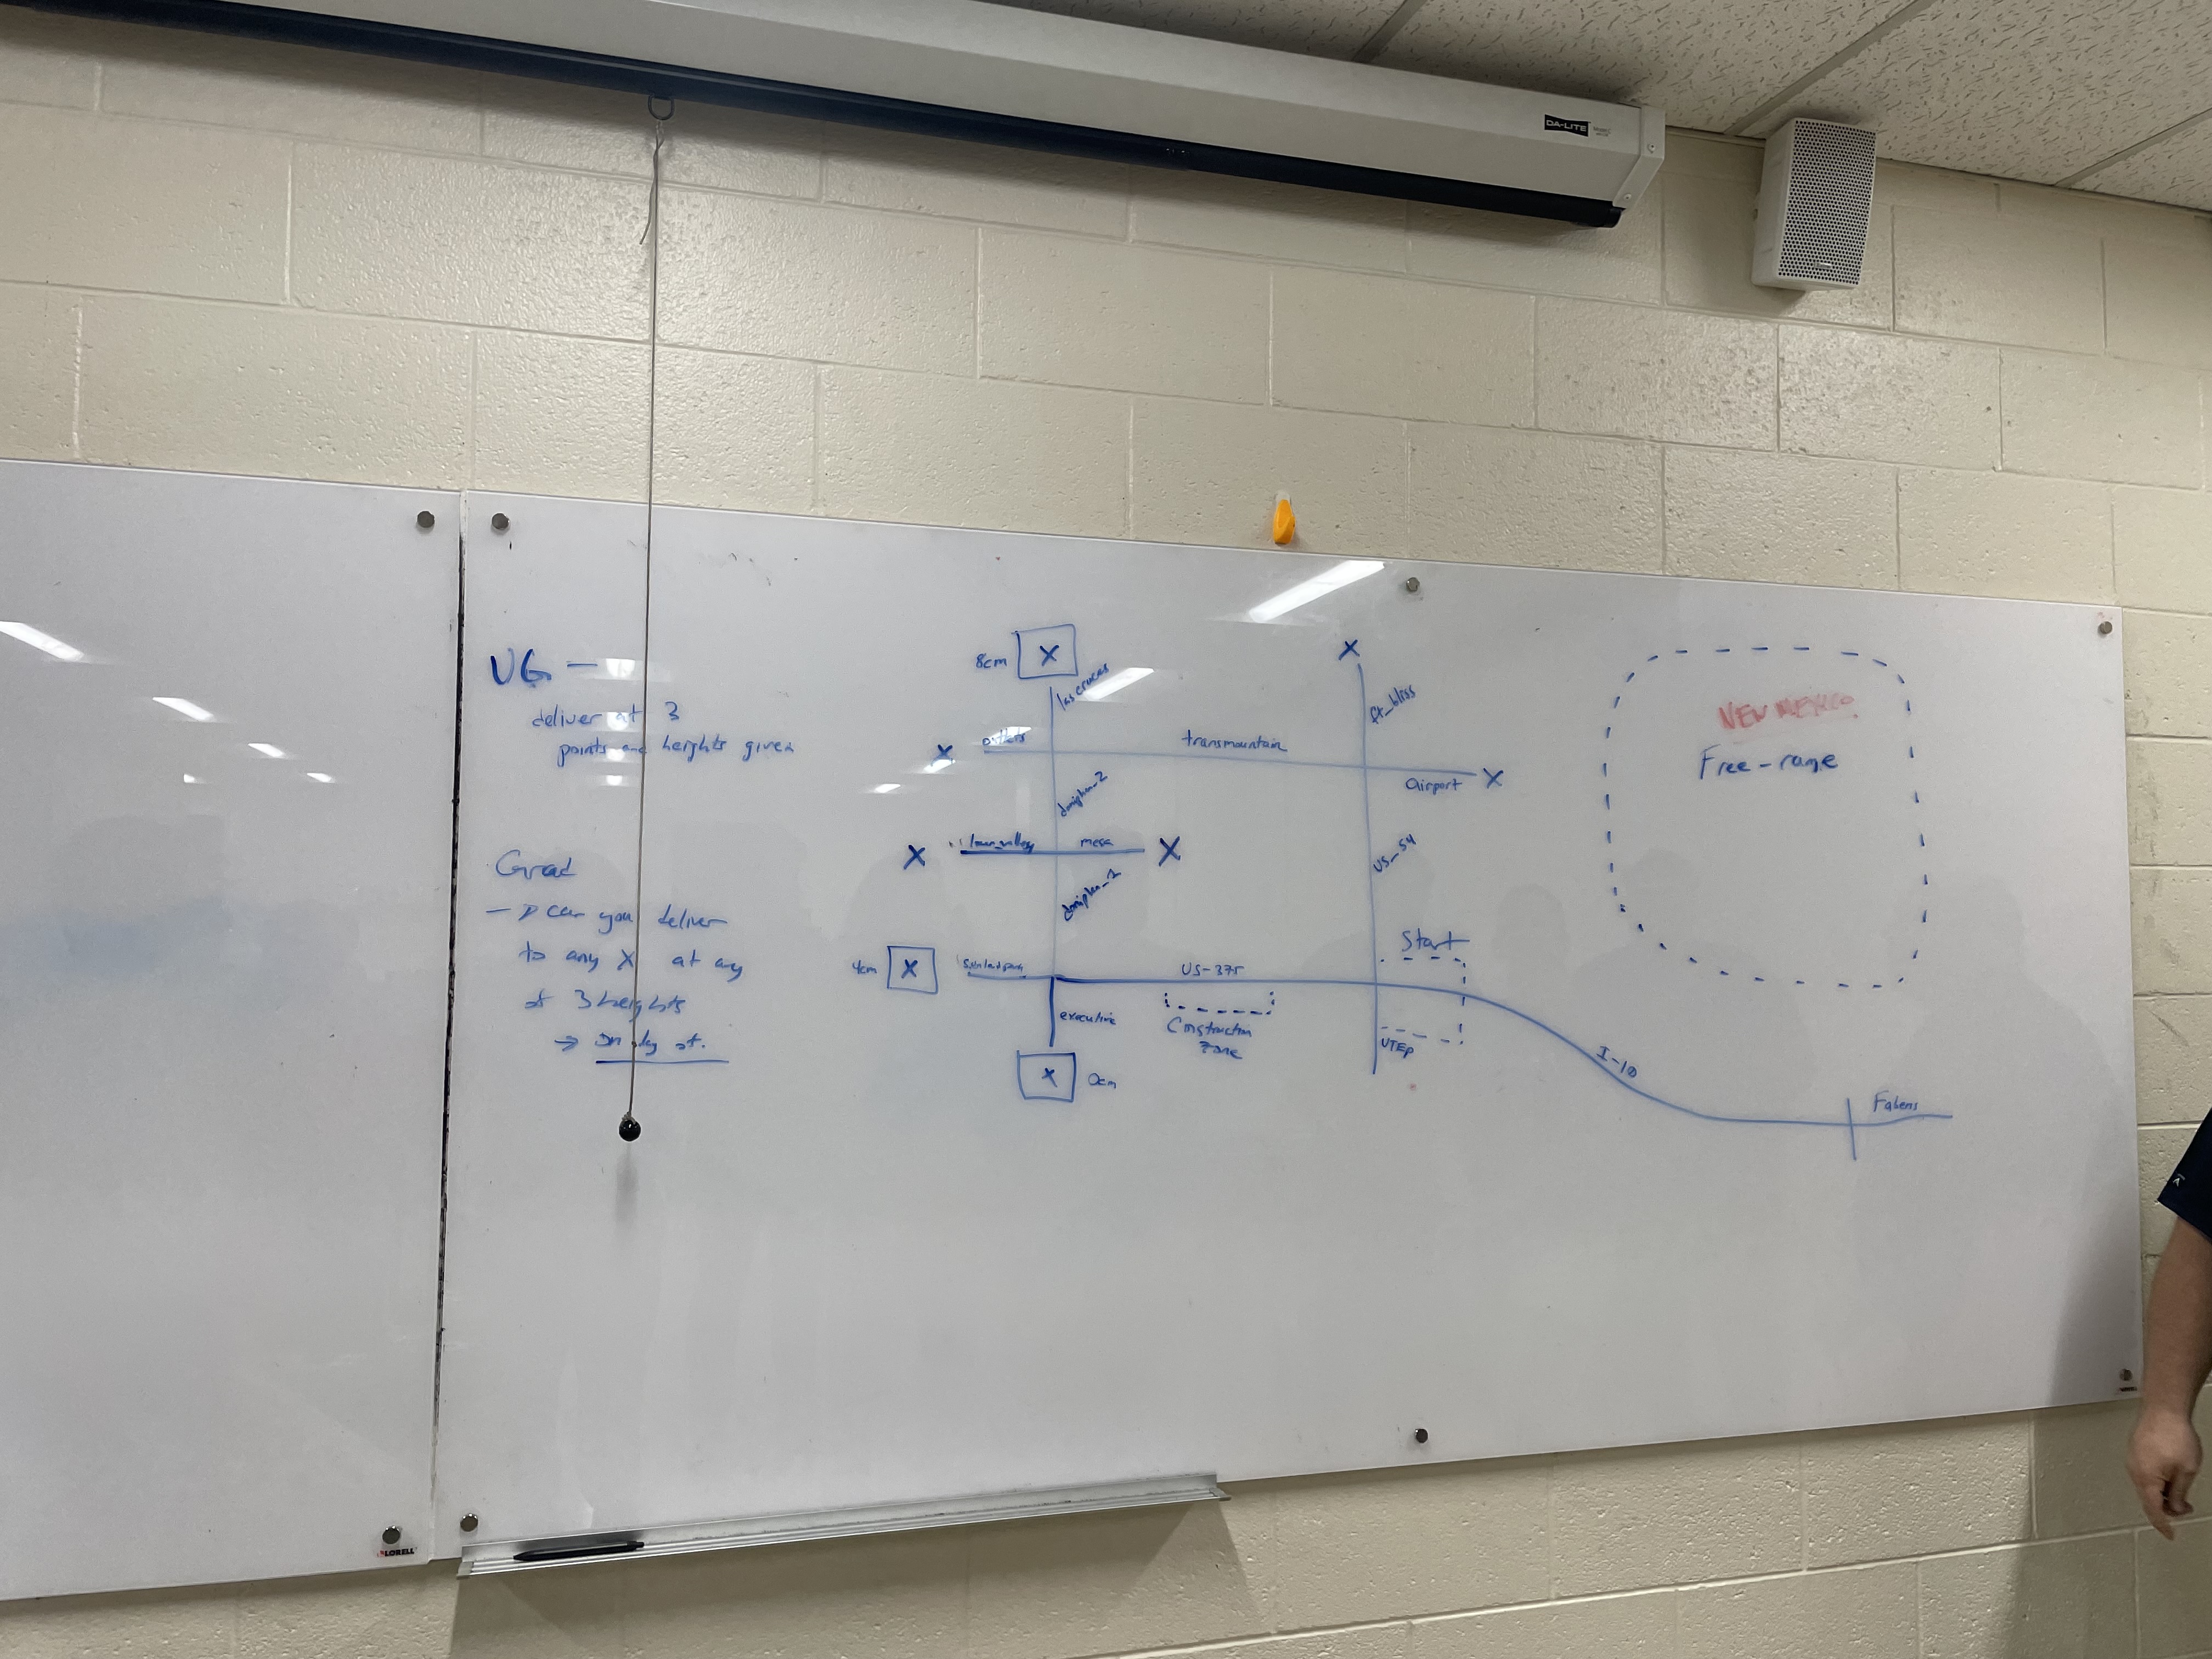 DA-LITE
UG -
deliver at 3
points and heights given
Grad
-> can you deliver
to any X at any
of 3 heights
→ on day of.
8cm
X
las cruces
X
outlets
transmountain
airport
X
X
ft_bliss
doniphan_2
X
mesa
X
doniphan_1
US_54
4cm
X
Sunland park
US-375
Start
executive
Construction
Zone
UTEP
X
0cm
I-10
Fabens
NEW MEXICO
Free-range
LORELL